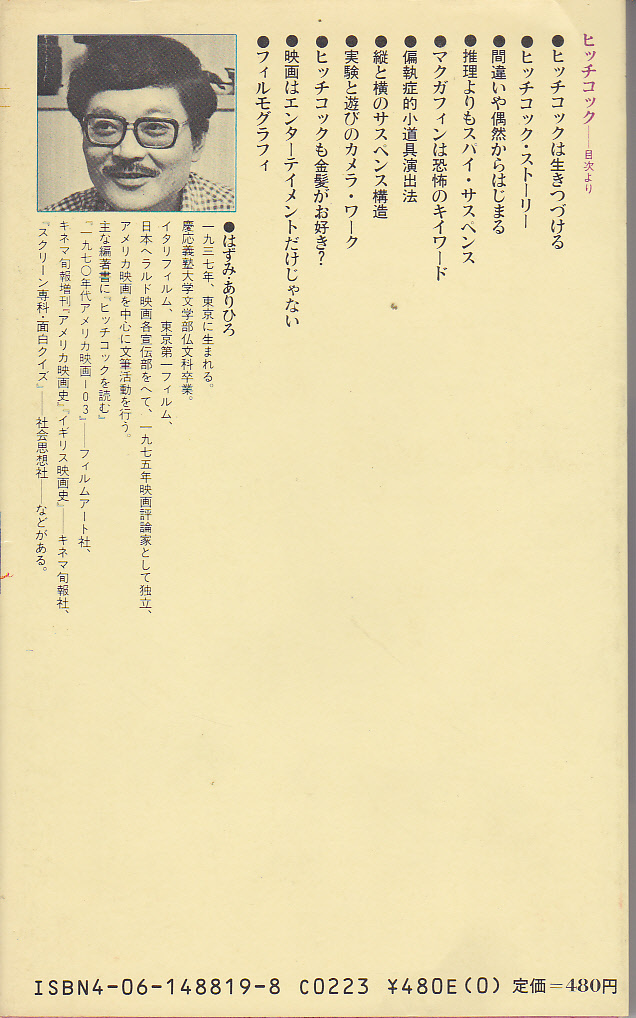 ヒッチコック――目次より
●ヒッチコックは生きつづける
●ヒッチコック・ストーリー
●間違いや偶然からはじまる
●推理よりもスパイ・サスペンス
●マクガフィンは恐怖のキイワード
●偏執症的小道具演出法
●縦と横のサスペンス構造
●実験と遊びのカメラ・ワーク
●ヒッチコックも金髪がお好き?
●映画はエンターテイメントだけじゃない
●フィルモグラフィ
●はずみ・ありひろ
一九三七年、東京に生まれる。
慶応義塾大学文学部仏文科卒業。
イタリフィルム、東京第一フィルム、
日本ヘラルド映画各宣伝部をへて、一九七五年映画評論家として独立、
アメリカ映画を中心に文筆活動を行う。
主な編著書に『ヒッチコックを読む』
『一九七〇年代アメリカ映画103』――フィルムアート社、
キネマ旬報増刊『アメリカ映画史』『イギリス映画史』――キネマ旬報社、
『スクリーン専科・面白クイズ』――社会思想社――などがある。
ISBN4-06-148819-8 C0223 ¥480E(0) 定価=480円